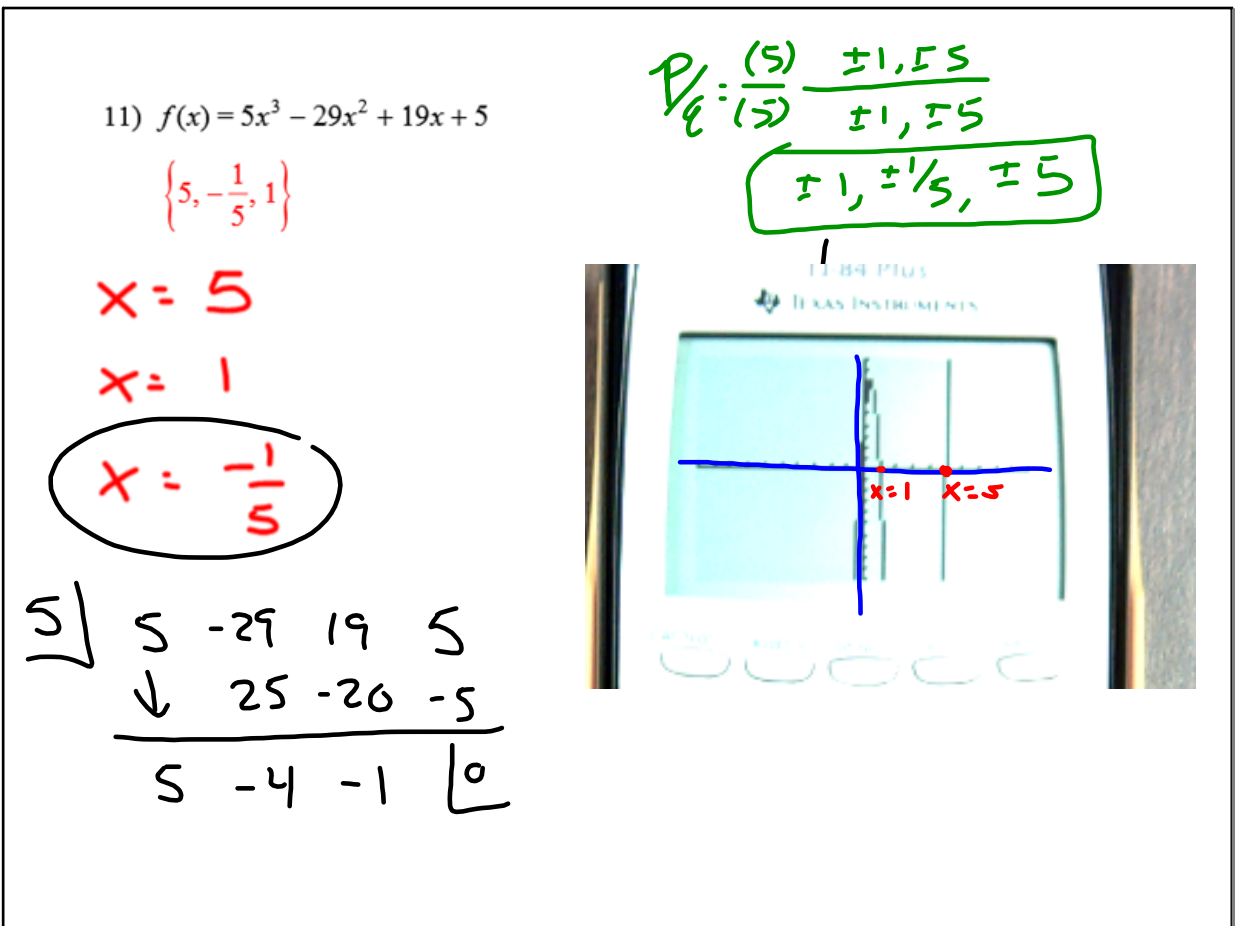 11) f(x) = 5x³ − 29x² + 19x + 5
{5, −1/5, 1}
x = 5
x = 1
x = -1/5
5 | 5 -29 19 5
↓ 25 -20 -5
5 -4 -1 | 0
P/q = (5)/(5) ±1, ±5 / ±1, ±5
±1, ±1/5, ±5
TI-84 Plus
TEXAS INSTRUMENTS
x=1 x=5